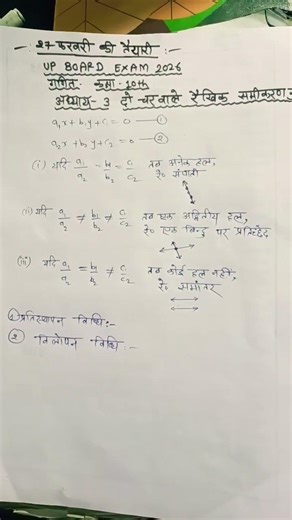 27 फरवरी की तैयारी :-
UP BOARD EXAM 2026
गणित:- कक्षा - 10th
अध्याय - 3 दो चर वाले रैखिक समीकरण
a₁x + b₁y + c₁ = 0 — ①
a₂x + b₂y + c₂ = 0 — ②
(i) यदि a₁/a₂ = b₁/b₂ = c₁/c₂ तब अनेक हल,
रे० संपाती
(ii) यदि a₁/a₂ ≠ b₁/b₂ ≠ c₁/c₂ तब एक अद्वितीय हल,
रे० एक बिन्दु पर प्रतिच्छेद
(iii) यदि a₁/a₂ = b₁/b₂ ≠ c₁/c₂ तब कोई हल नहीं,
रे० समांतर
① प्रतिस्थापन विधि :-
② विलोपन विधि :-